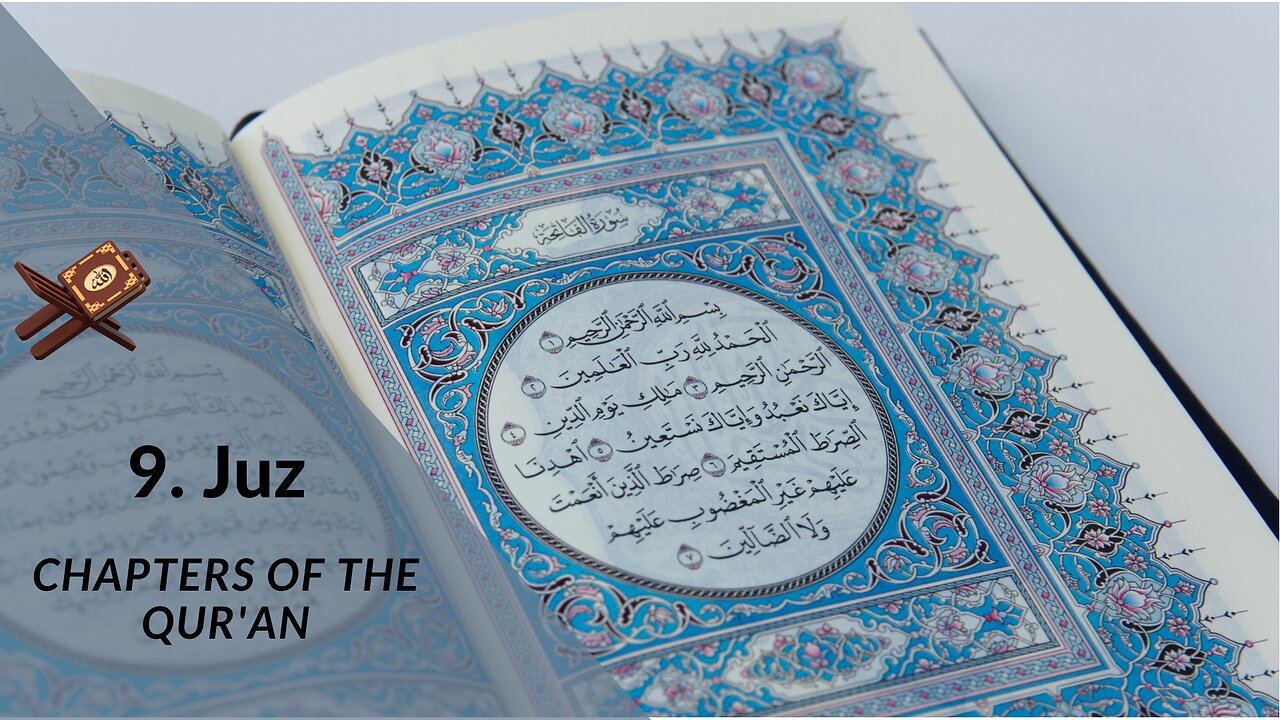 سُورَةُ الفَاتِحَةِ
بِسْمِ ٱللَّهِ ٱلرَّحْمَٰنِ ٱلرَّحِيمِ ١
ٱلْحَمْدُ لِلَّهِ رَبِّ ٱلْعَٰلَمِينَ ٢
ٱلرَّحْمَٰنِ ٱلرَّحِيمِ ٣ مَٰلِكِ يَوْمِ ٱلدِّينِ ٤
إِيَّاكَ نَعْبُدُ وَإِيَّاكَ نَسْتَعِينُ ٥ ٱهْدِنَا
ٱلصِّرَٰطَ ٱلْمُسْتَقِيمَ ٦ صِرَٰطَ ٱلَّذِينَ أَنْعَمْتَ
عَلَيْهِمْ غَيْرِ ٱلْمَغْضُوبِ عَلَيْهِمْ
وَلَا ٱلضَّآلِّينَ ٧
الله
بِسْمِ ٱللَّهِ ٱلرَّحْمَٰنِ ٱلرَّحِيمِ
9. Juz
CHAPTERS OF THE
QUR'AN